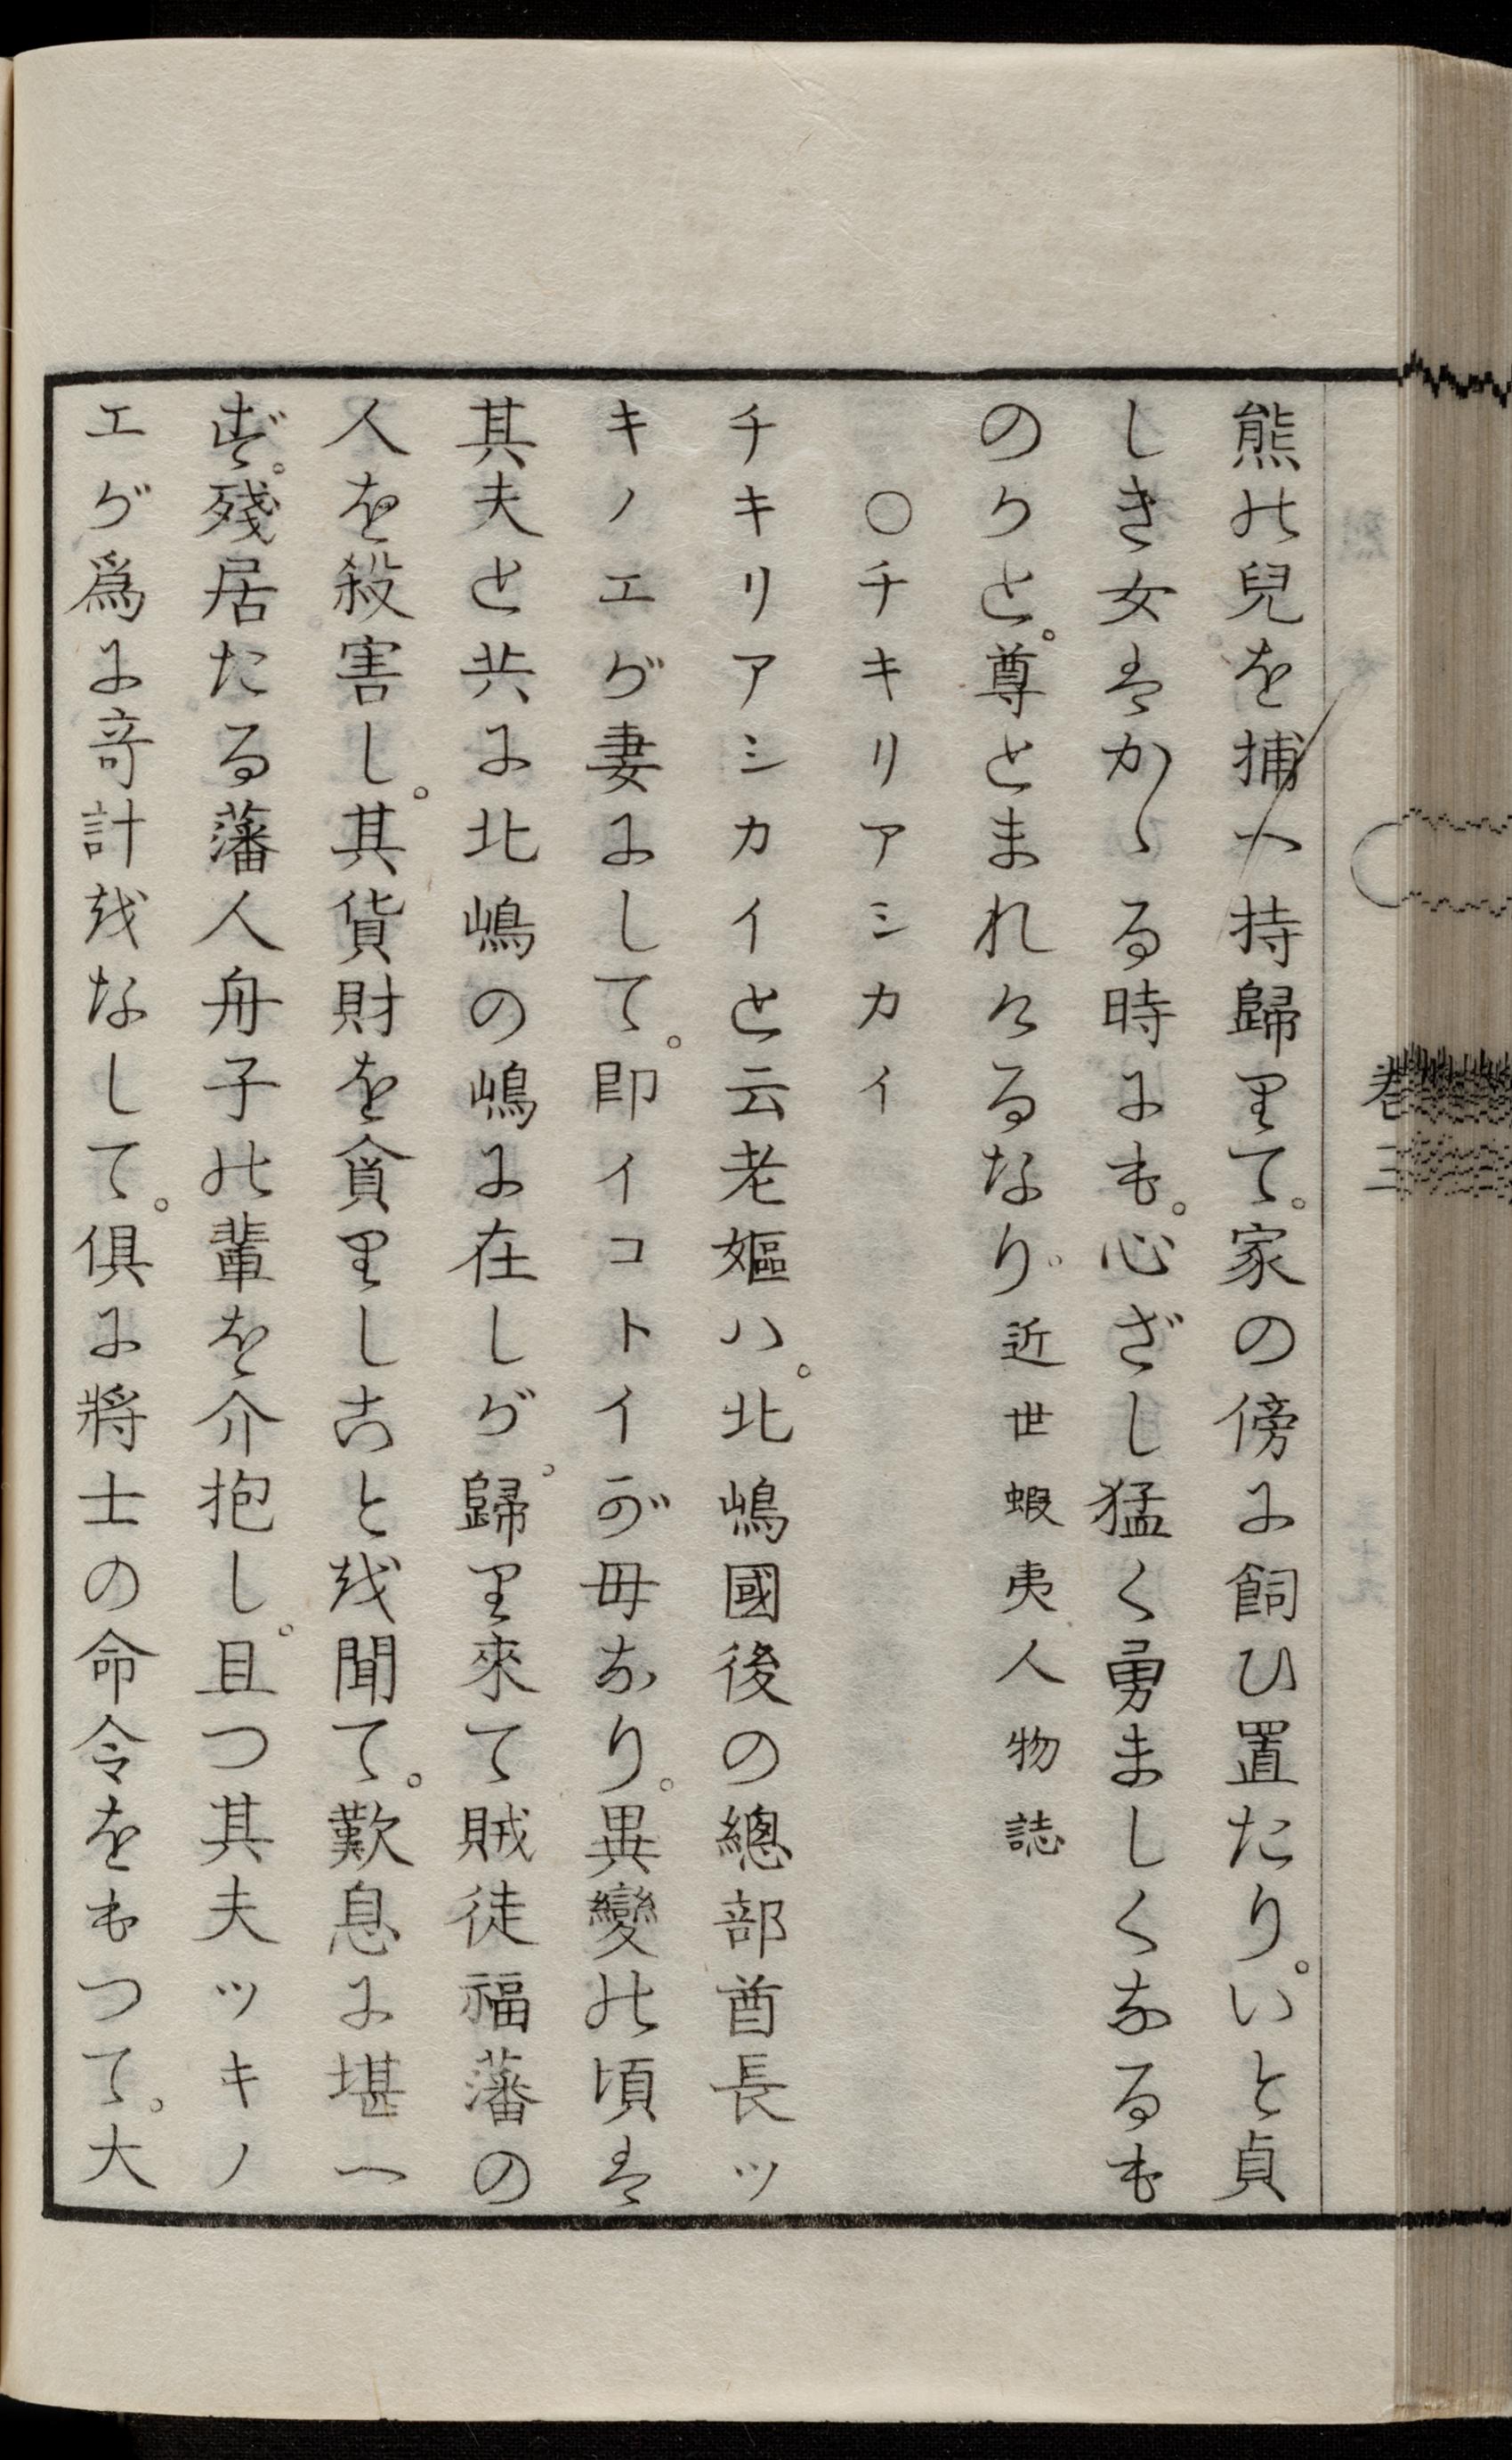 熊の兒を捕へ持歸りて。家の傍に飼ひ置たり。いと貞
しき女はかゝる時にも。心ざし猛く勇ましくなるも
のうと。尊とまれけるなり。近世蝦夷人物誌
○チキリアシカイ
チキリアシカイと云老嫗ハ。北嶋國後の總部酋長ツ
キノエが妻にして。即イコトイが母なり。異變の頃は
其夫と共に北嶋の嶋に在しが。歸り來て賊徒福藩の
人を殺害し。其貨財を貪りしことを聞て。歎息に堪へ
ず。殘居たる藩人舟子の輩を介抱し。且つ其夫ツキノ
エが爲に奇計をなして。俱に將士の命令をもつて。大
巻三